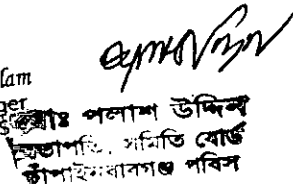 lam
ger
মোঃ পলাশ উদ্দিন
সভাপতি, সমিতি বোর্ড
চাঁপাইনবাবগঞ্জ পবিস